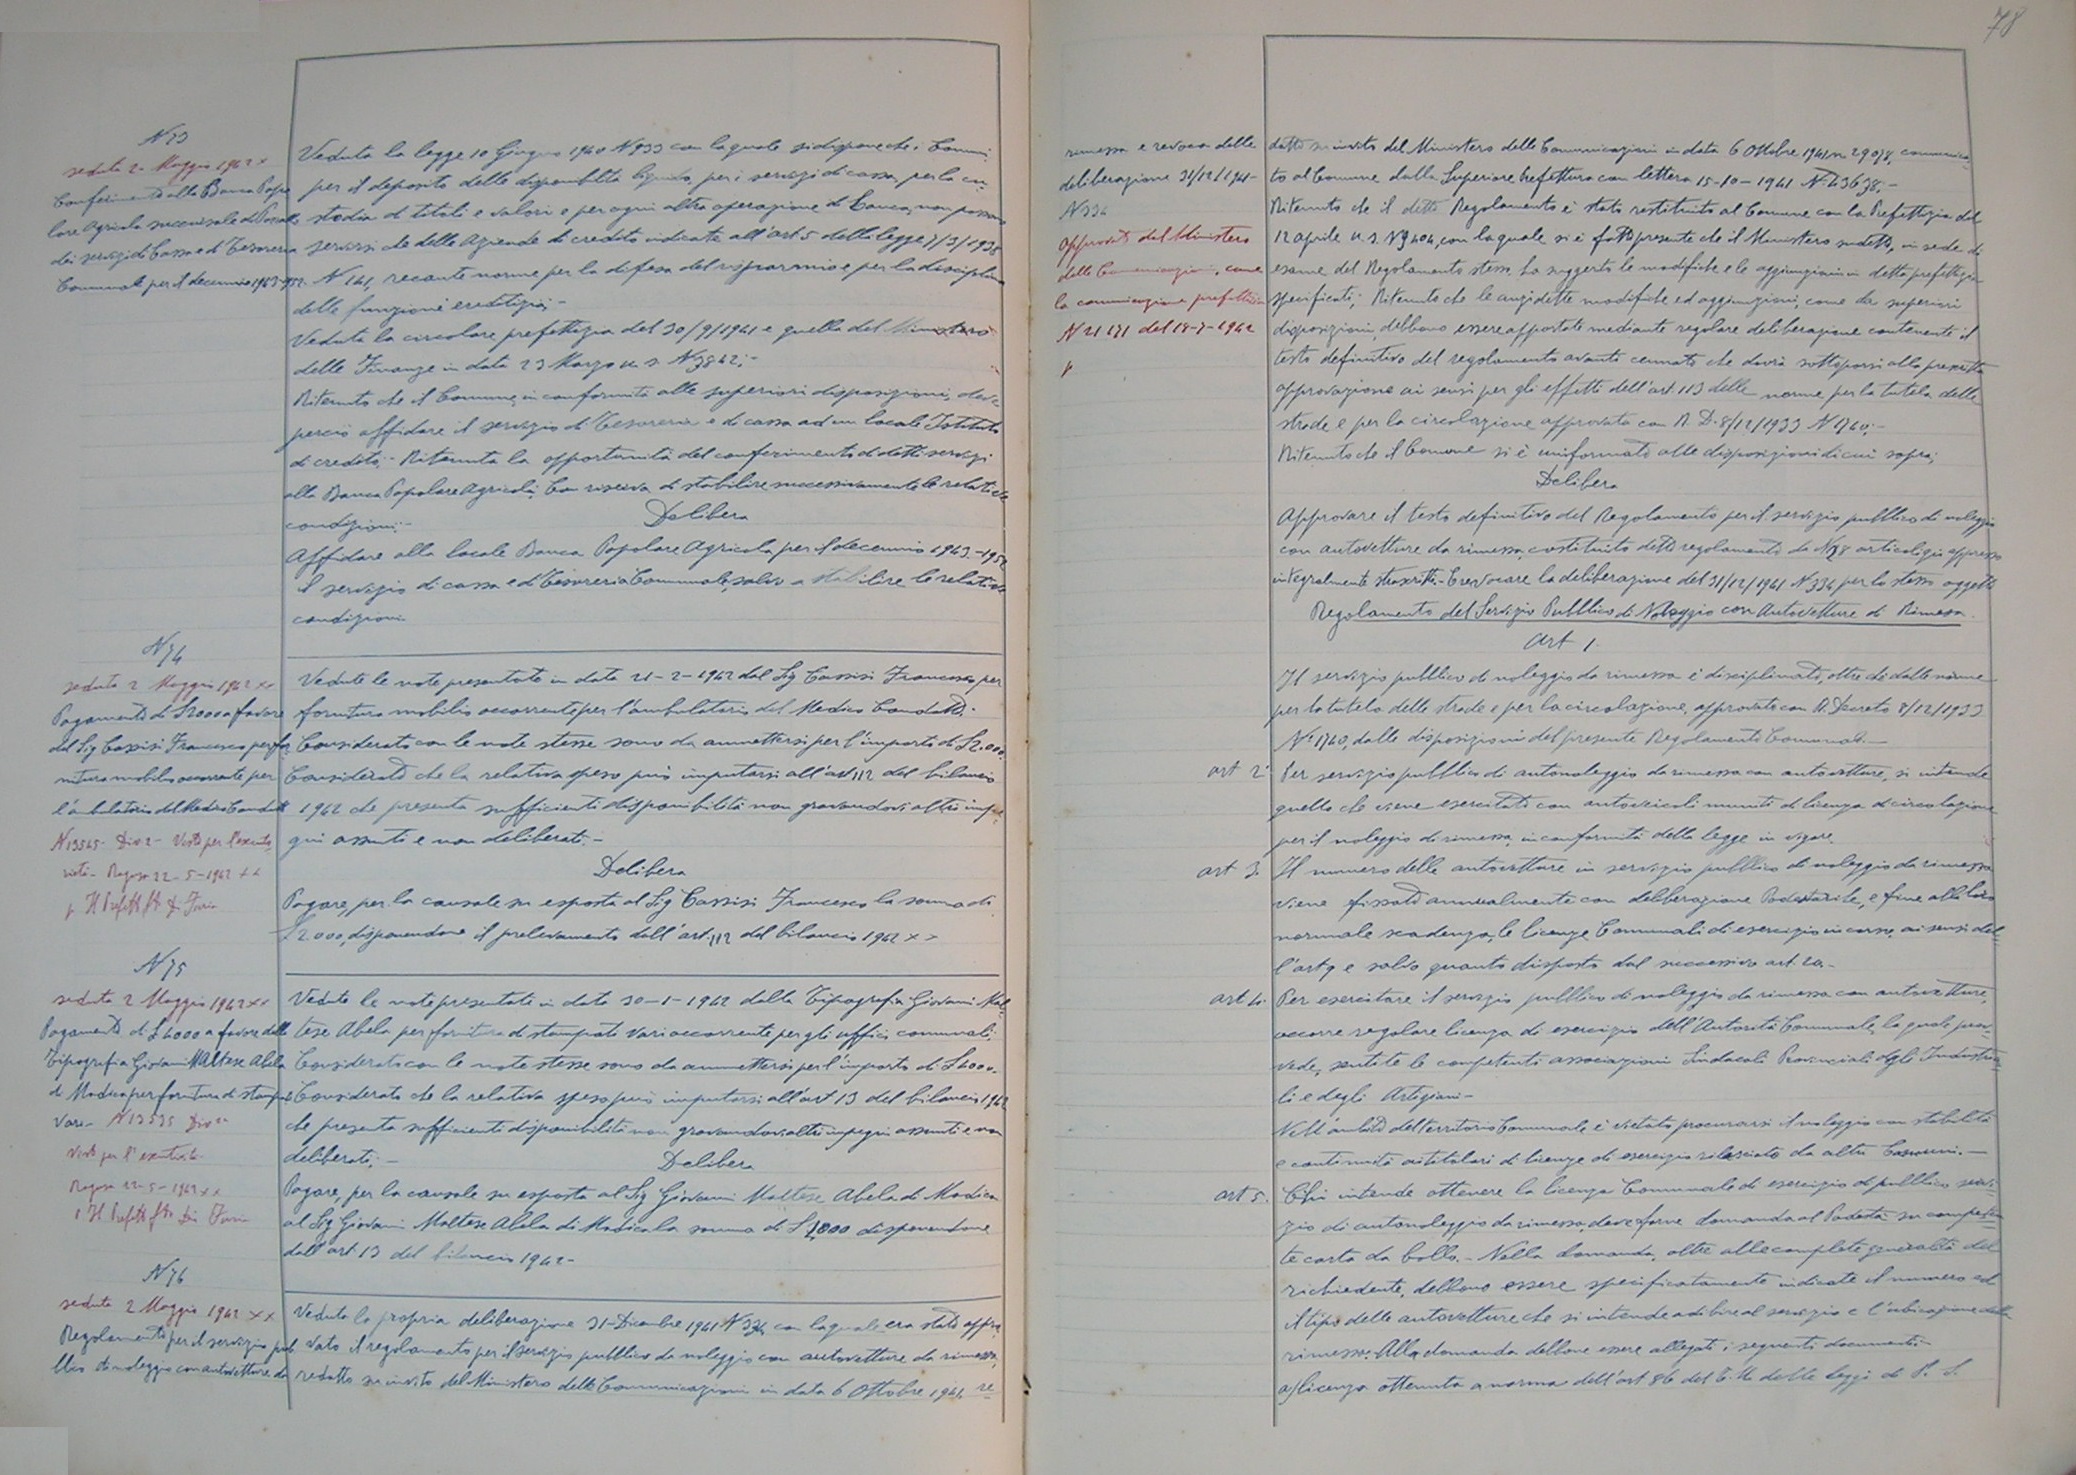 N 73
seduta 2 Maggio 1942 x
Conferimento alla Banca Popo
lare Agricola succursale di Pozzallo
dei servizi di Cassa e di Tesoreria
Comunale per il decennio 1943-952
Veduta la legge 10 Giugno 1940 N 933 con la quale si dispone che i Comuni
per il deposito delle disponibilità liquide, per i servizi di cassa, per la cu-
stodia di titoli e valori e per ogni altra operazione di banca, non possono
servirsi che delle Aziende di credito indicate all'art 5 della legge 7/3/1938
N 141, recante norme per la difesa del risparmio e per la disciplina
delle funzioni creditizie;-
Veduta la circolare prefettizia del 30/9/1941 e quella del Ministero
delle Finanze in data 23 Marzo u. s. N 3842;-
Ritenuto che il Comune, in conformità alle superiori disposizioni, deve
perciò affidare il servizio di Tesoreria e di cassa ad un locale Istituto
di credito;- Ritenuta la opportunità del conferimento di detti servizi
alla Banca Popolare Agricola, con riserva di stabilire successivamente le relative
condizioni:-
Delibera
Affidare alla locale Banca Popolare Agricola per il decennio 1943-1952
il servizio di cassa e di Tesoreria Comunale, salvo a stabilire le relative
condizioni
N 74
seduta 2 Maggio 1942 xx
Pagamento di £2000 a favore
del Sig Cassisi Francesco per for
nitura mobilio occorrente per
l'ambulatorio del Medico Condotto
N 13545- Div 2- Visto per l'esecuto
rietà- Ragusa 22-5-1942 xx
p Il Prefetto
Vedute le note presentate in data 21-2-1942 dal Sig Cassisi Francesco, per
fornitura mobilio occorrente per l'ambulatorio del Medico Condotto.
Considerato con le note stesse sono da ammettersi per l'importo di £2.000.
Considerato che la relativa spesa può imputarsi all'art 112 del bilancio
1942 che presenta sufficienti disponibilità non gravandovi altri impe
gni assunti e non deliberati.-
Delibera
Pagare, per la causale su esposta al Sig Cassisi Francesco la somma di
£2.000, disponendone il prelevamento dall'art. 112 del bilancio 1942 xx
N 75
seduta 2 Maggio 1942 xx
Pagamento di £4000 a favore della
Tipografia Giovanni Maltese Abela
di Modica per fornitura di stampati
vari- N 13535 Div 2a
Visto per l'esecutorietà
Ragusa 22-5-1942 xx
p Il Prefetto
Vedute le note presentate in data 30-1-1942 dalla Tipografia Giovanni Mal
tese Abela per fornitura di stampati vari occorrente per gli uffici comunali.
Considerato con le note stesse sono da ammettersi per l'importo di £4000.
Considerato che la relativa spesa può imputarsi all'art 13 del bilancio 1942
che presenta sufficienti disponibilità non gravandovi altri impegni assunti e non
deliberati;-
Delibera
Pagare, per la causale su esposta al Sig Giovanni Maltese Abela di Modica
al Sig Giovanni Maltese Abela di Modica la somma di £ disponendone
dall'art. 13 del bilancio 1942-
N 76
seduta 2 Maggio 1942 xx
Regolamento per il servizio pub
blico di noleggio con autovetture da
Veduta la propria deliberazione 31-Dicembre 1941 N 334 con la quale era stato appro
vato il regolamento per il servizio pubblico da noleggio con autovetture da rimessa,
redatto su invito del Ministero delle Comunicazioni in data 6 Ottobre 1941, re-
78
rimessa e revoca delle
deliberazione 31/12/1941-
N 334
Approvato dal Ministero
delle Comunicazioni, come
la comunicazione prefettizia
N 21471 del 18-7-1942
datto su invito del Ministero delle Comunicazioni in data 6 Ottobre 1941 n 29078, comunica
to al Comune dalla Superiore Prefettura con lettera 15-10-1941 N 43638;-
Ritenuto che il detto Regolamento è stato restituito al Comune con la Prefettizia del
12 aprile u. s. N 9404, con la quale si è fatto presente che il Ministero sudetto, in sede di
esame del Regolamento stesso, ha suggerito le modifiche e le aggiunzioni in detta prefettizia
specificati; Ritenuto che le anzidette modifiche ed aggiunzioni, come da superiori
disposizioni, debbono essere apportate mediante regolare deliberazione contenente il
testo definitivo del regolamento avanti cennato che dovrà sottoporsi alla prescritta
approvazione ai sensi per gli effetti dell'art. 113 delle norme per la tutela delle
strade e per la circolazione approvata con R. D. 8/12/1933 N 1740;-
Ritenuto che il Comune si è uniformato alle disposizioni di cui sopra;
Delibera
Approvare il testo definitivo del Regolamento per il servizio pubblico di noleggio
con autovetture da rimessa, costituito detto regolamento da N 28 articoli qui appresso
integralmente trascritti- E revocare la deliberazione del 31/12/1941 N 334 per lo stesso oggetto
Regolamento del Servizio Pubblico di Noleggio con Autovetture di Rimessa.
Art 1.
Il servizio pubblico di noleggio da rimessa è disciplinato, oltre che dalle norme
per la tutela delle strade e per la circolazione, approvato con R. Decreto 8/12/1933
N° 1740, dalle disposizioni del presente Regolamento Comunale.-
art 2° Per servizio pubblico di autonoleggio da rimessa con autovetture, si intende
quello che viene esercitato con autoveicoli muniti di licenza di circolazione
per il noleggio di rimessa, in conformità della legge in vigore.
art 3. Il numero delle autovetture in servizio pubblico di noleggio da rimessa
viene fissato annualmente con deliberazione Podestarile, e fine alla loro
normale scadenza, le licenze Comunali di esercizio in corso, ai sensi del
l'art 9 e salvo quanto disposto dal successivo art. 20.-
art 4. Per esercitare il servizio pubblico di noleggio da rimessa con autovetture,
occorre regolare licenza di esercizio dell'Autorità Comunale, la quale prov
vede, sentite le competenti associazioni Sindacali Provinciali degli Industria
li e degli Artigiani-
Nell'ambito del territorio Comunale è vietato procurarsi il noleggio con stabilità
e continuità ai titolari di licenze di esercizio rilasciate da altri Comuni.-
art 5. Chi intende ottenere la licenza Comunale di esercizio di pubblico servi-
zio di autonoleggio da rimessa deve farne domanda al Podestà su competen
te carta da bollo.- Nella domanda, oltre alle complete generalità del
richiedente, debbono essere specificatamente indicate il numero ed
il tipo delle autovetture che si intende adibire al servizio e l'ubicazione della
rimessa. Alla domanda debbono essere allegati i seguenti documenti:-
a) licenza ottenuta a norma dell'art 86 del T. U. delle leggi di P. S.